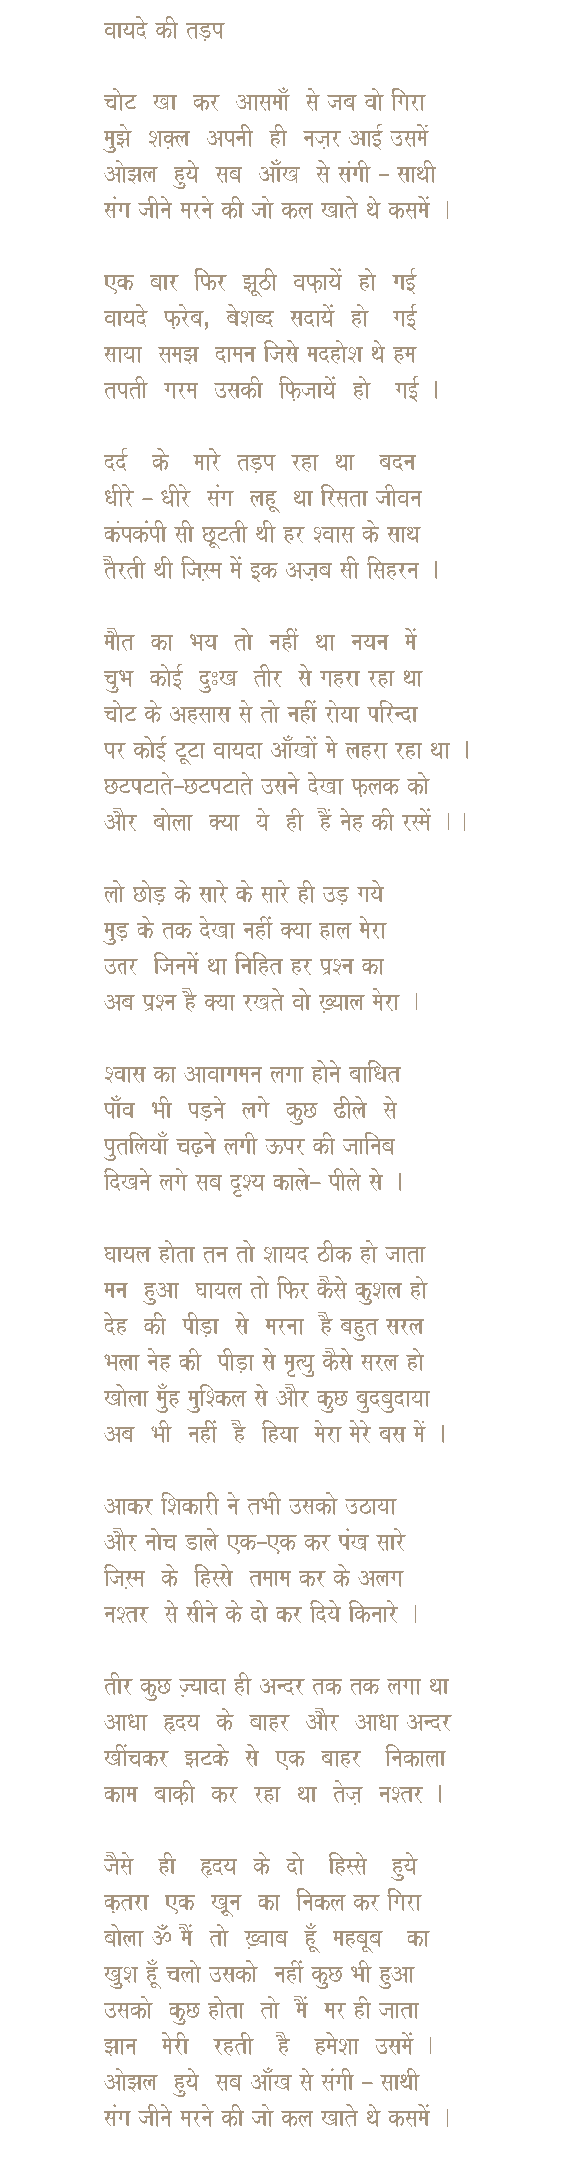 वायदे की तड़प
चोट खा कर आसमाँ से जब वो गिरा
मुझे शक्ल अपनी ही नज़र आई उसमें
ओझल हुये सब आँख से संगी - साथी
संग जीने मरने की जो कल खाते थे कसमें ।
एक बार फिर झूठी वफ़ायें हो गई
वायदे फ़रेब, बेशब्द सदायें हो गई
साया समझ दामन जिसे मदहोश थे हम
तपती गरम उसकी फ़िजायें हो गई ।
दर्द के मारे तड़प रहा था बदन
धीरे - धीरे संग लहू था रिसता जीवन
कंपकंपी सी छूटती थी हर श्वास के साथ
तैरती थी जिस़्म में इक अज़ब सी सिहरन ।
मौत का भय तो नहीं था नयन में
चुभ कोई दुःख तीर से गहरा रहा था
चोट के अहसास से तो नहीं रोया परिन्दा
पर कोई टूटा वायदा आँखों मे लहरा रहा था ।
छटपटाते-छटपटाते उसने देखा फ़लक को
और बोला क्या ये ही हैं नेह की रस्में ।।
लो छोड़ के सारे के सारे ही उड़ गये
मुड़ के तक देखा नहीं क्या हाल मेरा
उतर जिनमें था निहित हर प्रश्न का
अब प्रश्न है क्या रखते वो ख़्याल मेरा ।
श्वास का आवागमन लगा होने बाधित
पाँव भी पड़ने लगे कुछ ढीले से
पुतलियाँ चढ़ने लगी ऊपर की जानिब
दिखने लगे सब दृश्य काले- पीले से ।
घायल होता तन तो शायद ठीक हो जाता
मन हुआ घायल तो फिर कैसे कुशल हो
देह की पीड़ा से मरना है बहुत सरल
भला नेह की पीड़ा से मृत्यु कैसे सरल हो
खोला मुँह मुश्किल से और कुछ बुदबुदाया
अब भी नहीं है हिया मेरा मेरे बस में ।
आकर शिकारी ने तभी उसको उठाया
और नोच डाले एक-एक कर पंख सारे
जिस़्म के हिस्से तमाम कर के अलग
नश्तर से सीने के दो कर दिये किनारे ।
तीर कुछ ज़्यादा ही अन्दर तक तक लगा था
आधा हृदय के बाहर और आधा अन्दर
खींचकर झटके से एक बाहर निकाला
काम बाक़ी कर रहा था तेज़ नश्तर ।
जैसे ही हृदय के दो हिस्से हुये
क़तरा एक खून का निकल कर गिरा
बोला ॐ मैं तो ख़्वाब हूँ महबूब का
खुश हूँ चलो उसको नहीं कुछ भी हुआ
उसको कुछ होता तो मैं मर ही जाता
झान मेरी रहती है हमेशा उसमें ।
ओझल हुये सब आँख से संगी - साथी
संग जीने मरने की जो कल खाते थे कसमें ।